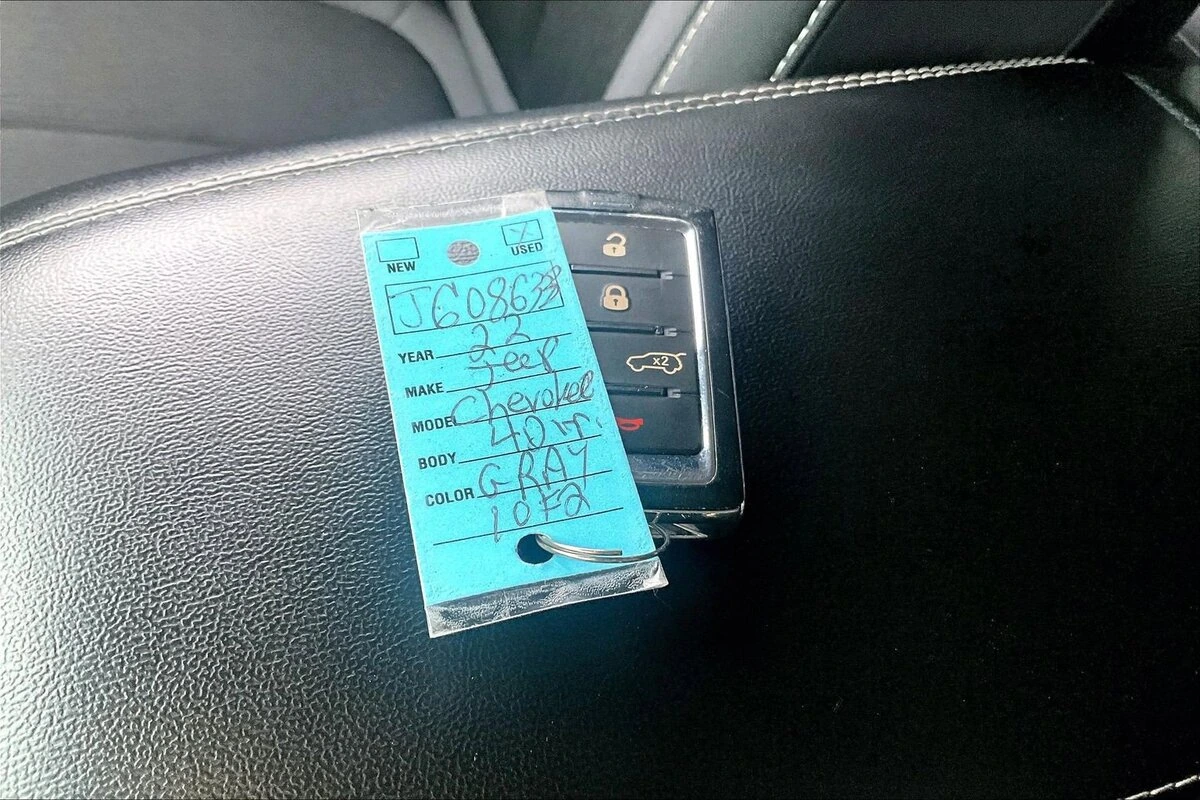 X
NEW USED
J60863
YEAR 22
MAKE Jeep
MODEL Cherokee
BODY
COLOR GRAY
1 OF 2
x2